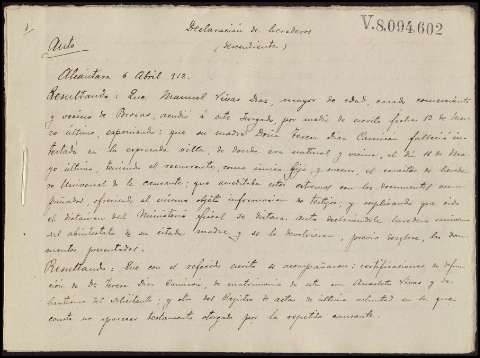 Declaración de herederos
V.8.094,602
(descendientes)
Auto
Alcántara 6 Abril 912.
Resultando: Que Manuel Vivas Dias, mayor de edad, casado
y vecino de Brozas, acudió a este Juzgado, por medio de escrito fecha 13 de Mar
zo último, exponiendo: que su madre Doña Teresa Dias falleció in
testada en la expresada villa, de donde era natural y vecina, el dia 10 de Ma
yo último, teniendo el recurrente, como único hijo, el caracter de herede
ro Universal de la causante; que acreditaba estos extremos con los documentos acom
pañados, ofreciendo al mismo objeto información de testigos; y suplicando que oido
el dictamen del Ministerio fiscal se dictara auto declarándole heredero universal
del abintestato de su citada madre y se le devolvieran, previo desglose, los docu
mentos presentados.
Resultando: Que con el referido escrito se acompañaron: certificaciones de defun
ción de Dª Teresa Dias, de matrimonio de esta con Anacleto Vivas y de
bautismo del solicitante; y otra del Registro de actos de última voluntad en la que
consta no aparecer testamento otorgado por la repetida causante.